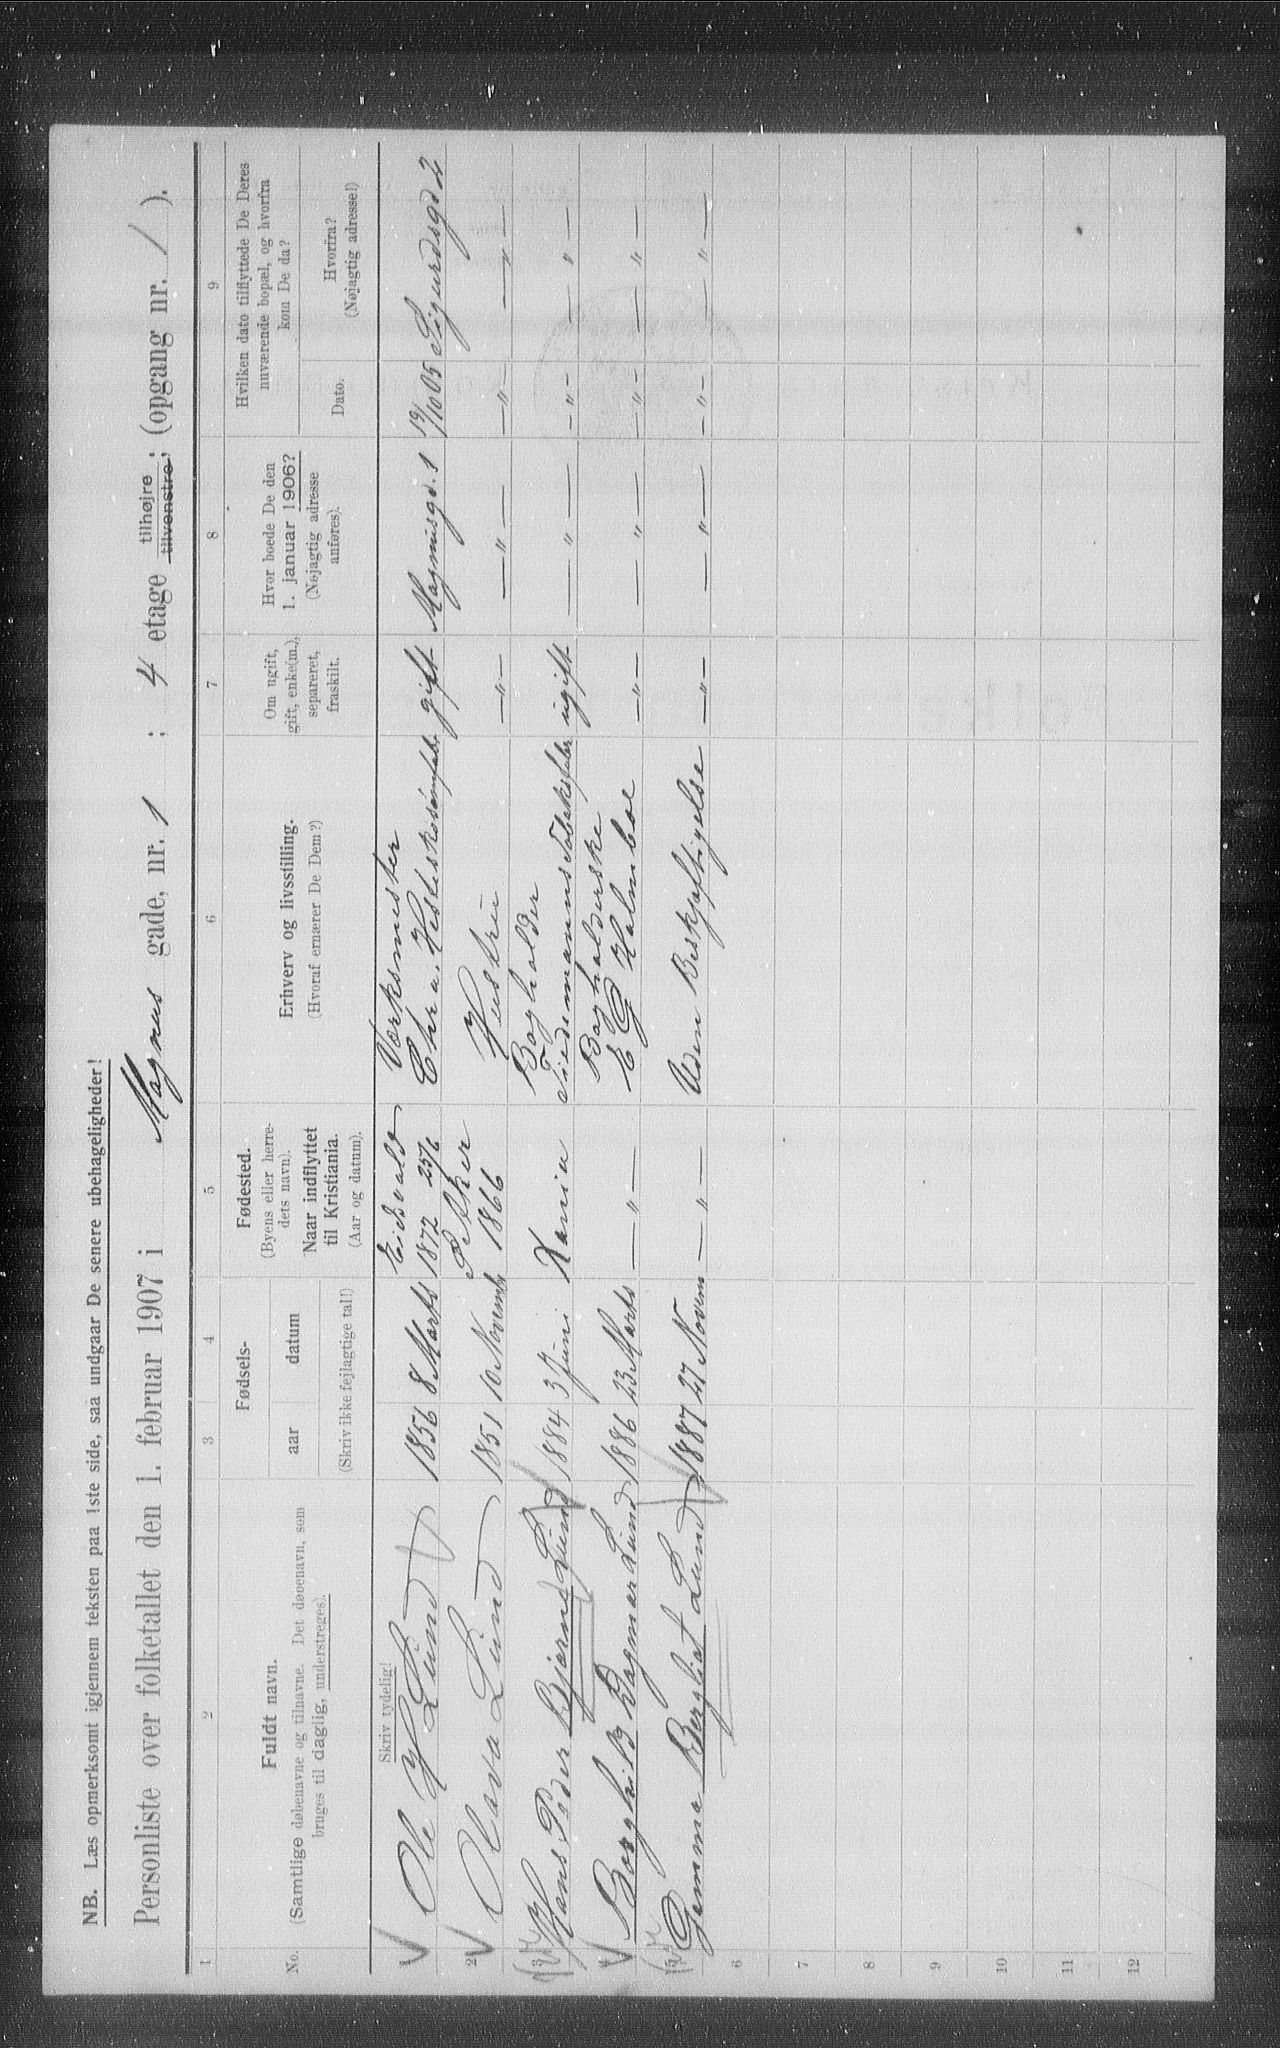 NB. Læs opmerksomt igjennem teksten paa 1ste side, saa undgaar De senere ubehageligheder!
Personliste over folketallet den 1. februar 1907 i Magnus gade, nr. 1 ; 4 etage tilhøjre tilvenstre; (opgang nr. / ).
1 2 3 4 5 6 7 8 9
No.
Fuldt navn.
(Samtlige døbenavne og tilnavne. Det døbenavn, som
bruges til daglig, understreges).
Fødsels-
aar datum
(Skriv ikke fejlagtige tal!)
Fødested.
(Byens eller herre-
dets navn).
Naar indflyttet
til Kristiania.
(Aar og datum).
Erhverv og livsstilling.
(Hvoraf ernærer De Dem?)
Om ugift,
gift, enke(m.),
separeret,
fraskilt.
Hvor boede De den
1. januar 1906?
(Nøjagtig adresse
anføres).
Hvilken dato tilflyttede De Deres
nuværende bopæl, og hvorfra
kom De da?
Dato.
Hvorfra?
(Nøjagtig adresse!)
Skriv tydelig!
Eidsvald Værksmester
Ole H Lund 1856 8 Marts 1872 25/6 Chr a. Hesteskosømfab. gift Magnusgd. 1 19/10 05 Sigurdsgd 2
Aker
2 Olava Lund 1851 10 Novemb 1866 Hustru —"— —"— —"— —"—
Bogholder
3 Hans Peder Bjarne Lund 1884 3 Juni Kania Tiedemanns Tobaksfabr ugift —"— —"— —"—
Bogholderske
4 Borghild Dagmar Lund 1886 23 Marts —"— E G Holmboe —"— —"— —"— —"—
5 Gemma Bergliot Lund 1887 27 Novem —"— Uden Beskjæftigelse —"— —"— —"— —"—
6
7
8
9
10
11
12